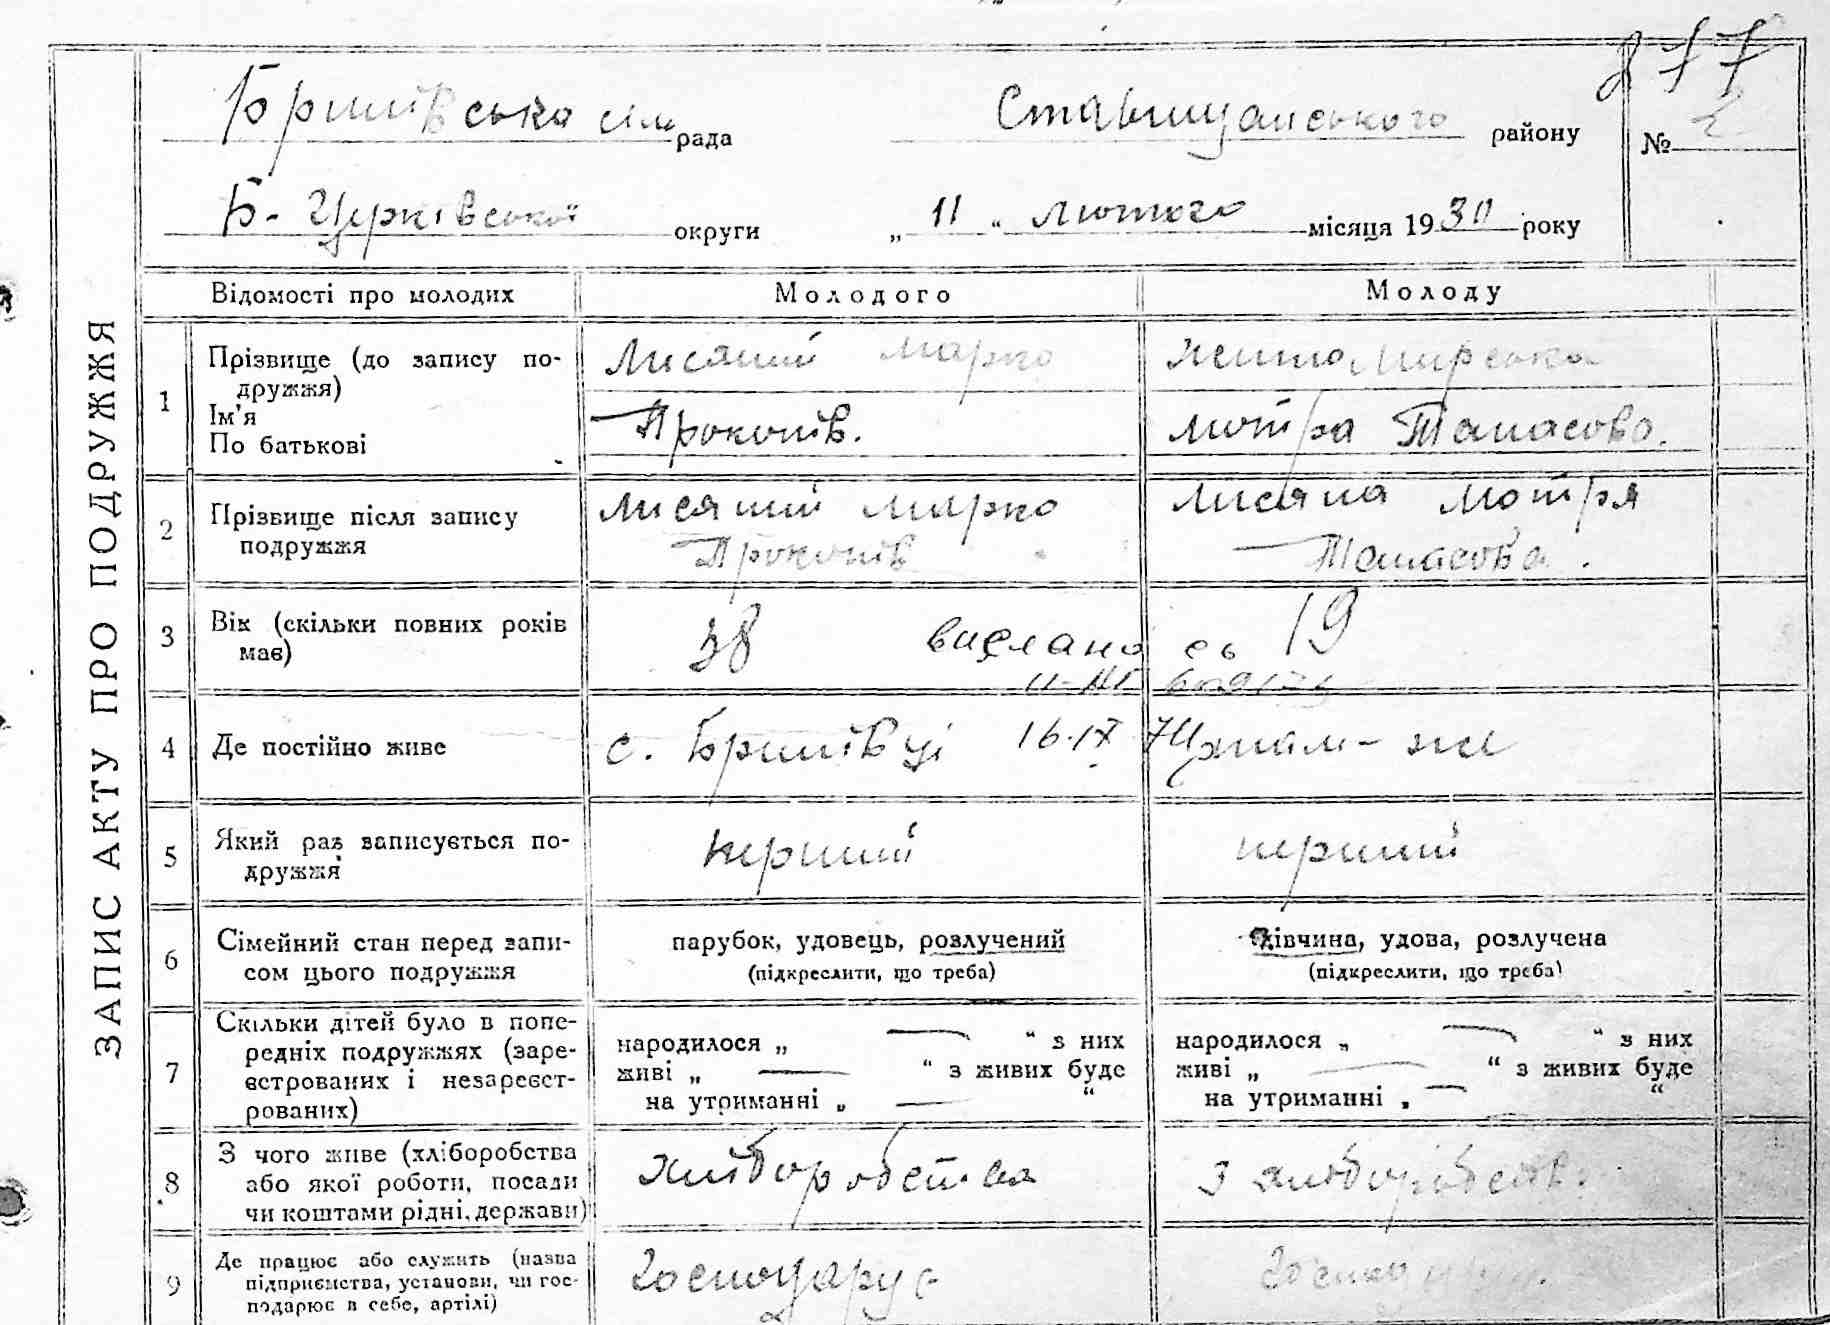 277
Бришівська сіль рада Ставищанського району № 2
Б-Церківської округи „ 11 “ лютого місяця 1930 року
ЗАПИС АКТУ ПРО ПОДРУЖЖЯ
Відомості про молодих Молодого Молоду
1 Прізвище (до запису по-
дружжя)
Ім'я
По батькові
Лисяний Марко
Прокопів.
Житомирська
Мотря Танасова.
2 Прізвище після запису
подружжя
Лисяний Марко
Прокопів
Лисяна Мотря
Танасова.
3 Вік (скільки повних років
має)
38
19
вислано сь
4 Де постійно живе
с. Бришівці
16·IX 74
5 Який раз записується по-
дружжя
перший
перший
6 Сімейний стан перед запи-
сом цього подружжя
парубок, удовець, розлучений
(підкреслити, що треба)
дівчина, удова, розлучена
(підкреслити, що треба)
7 Скільки дітей було в попе-
редніх подружжях (заре-
єстрованих і незареєст-
рованих)
народилося „ — “ з них
живі „ — “ з живих буде
на утриманні „ — “
народилося „ — “ з них
живі „ — “ з живих буде
на утриманні „ — “
8 З чого живе (хліборобства
або якої роботи, посади
чи коштами рідні, держави)
хліборобства
з хліборобства
9 Де працює або служить (назва
підприємства, установи, чи гос-
подарює в себе, артілі)
Господарує